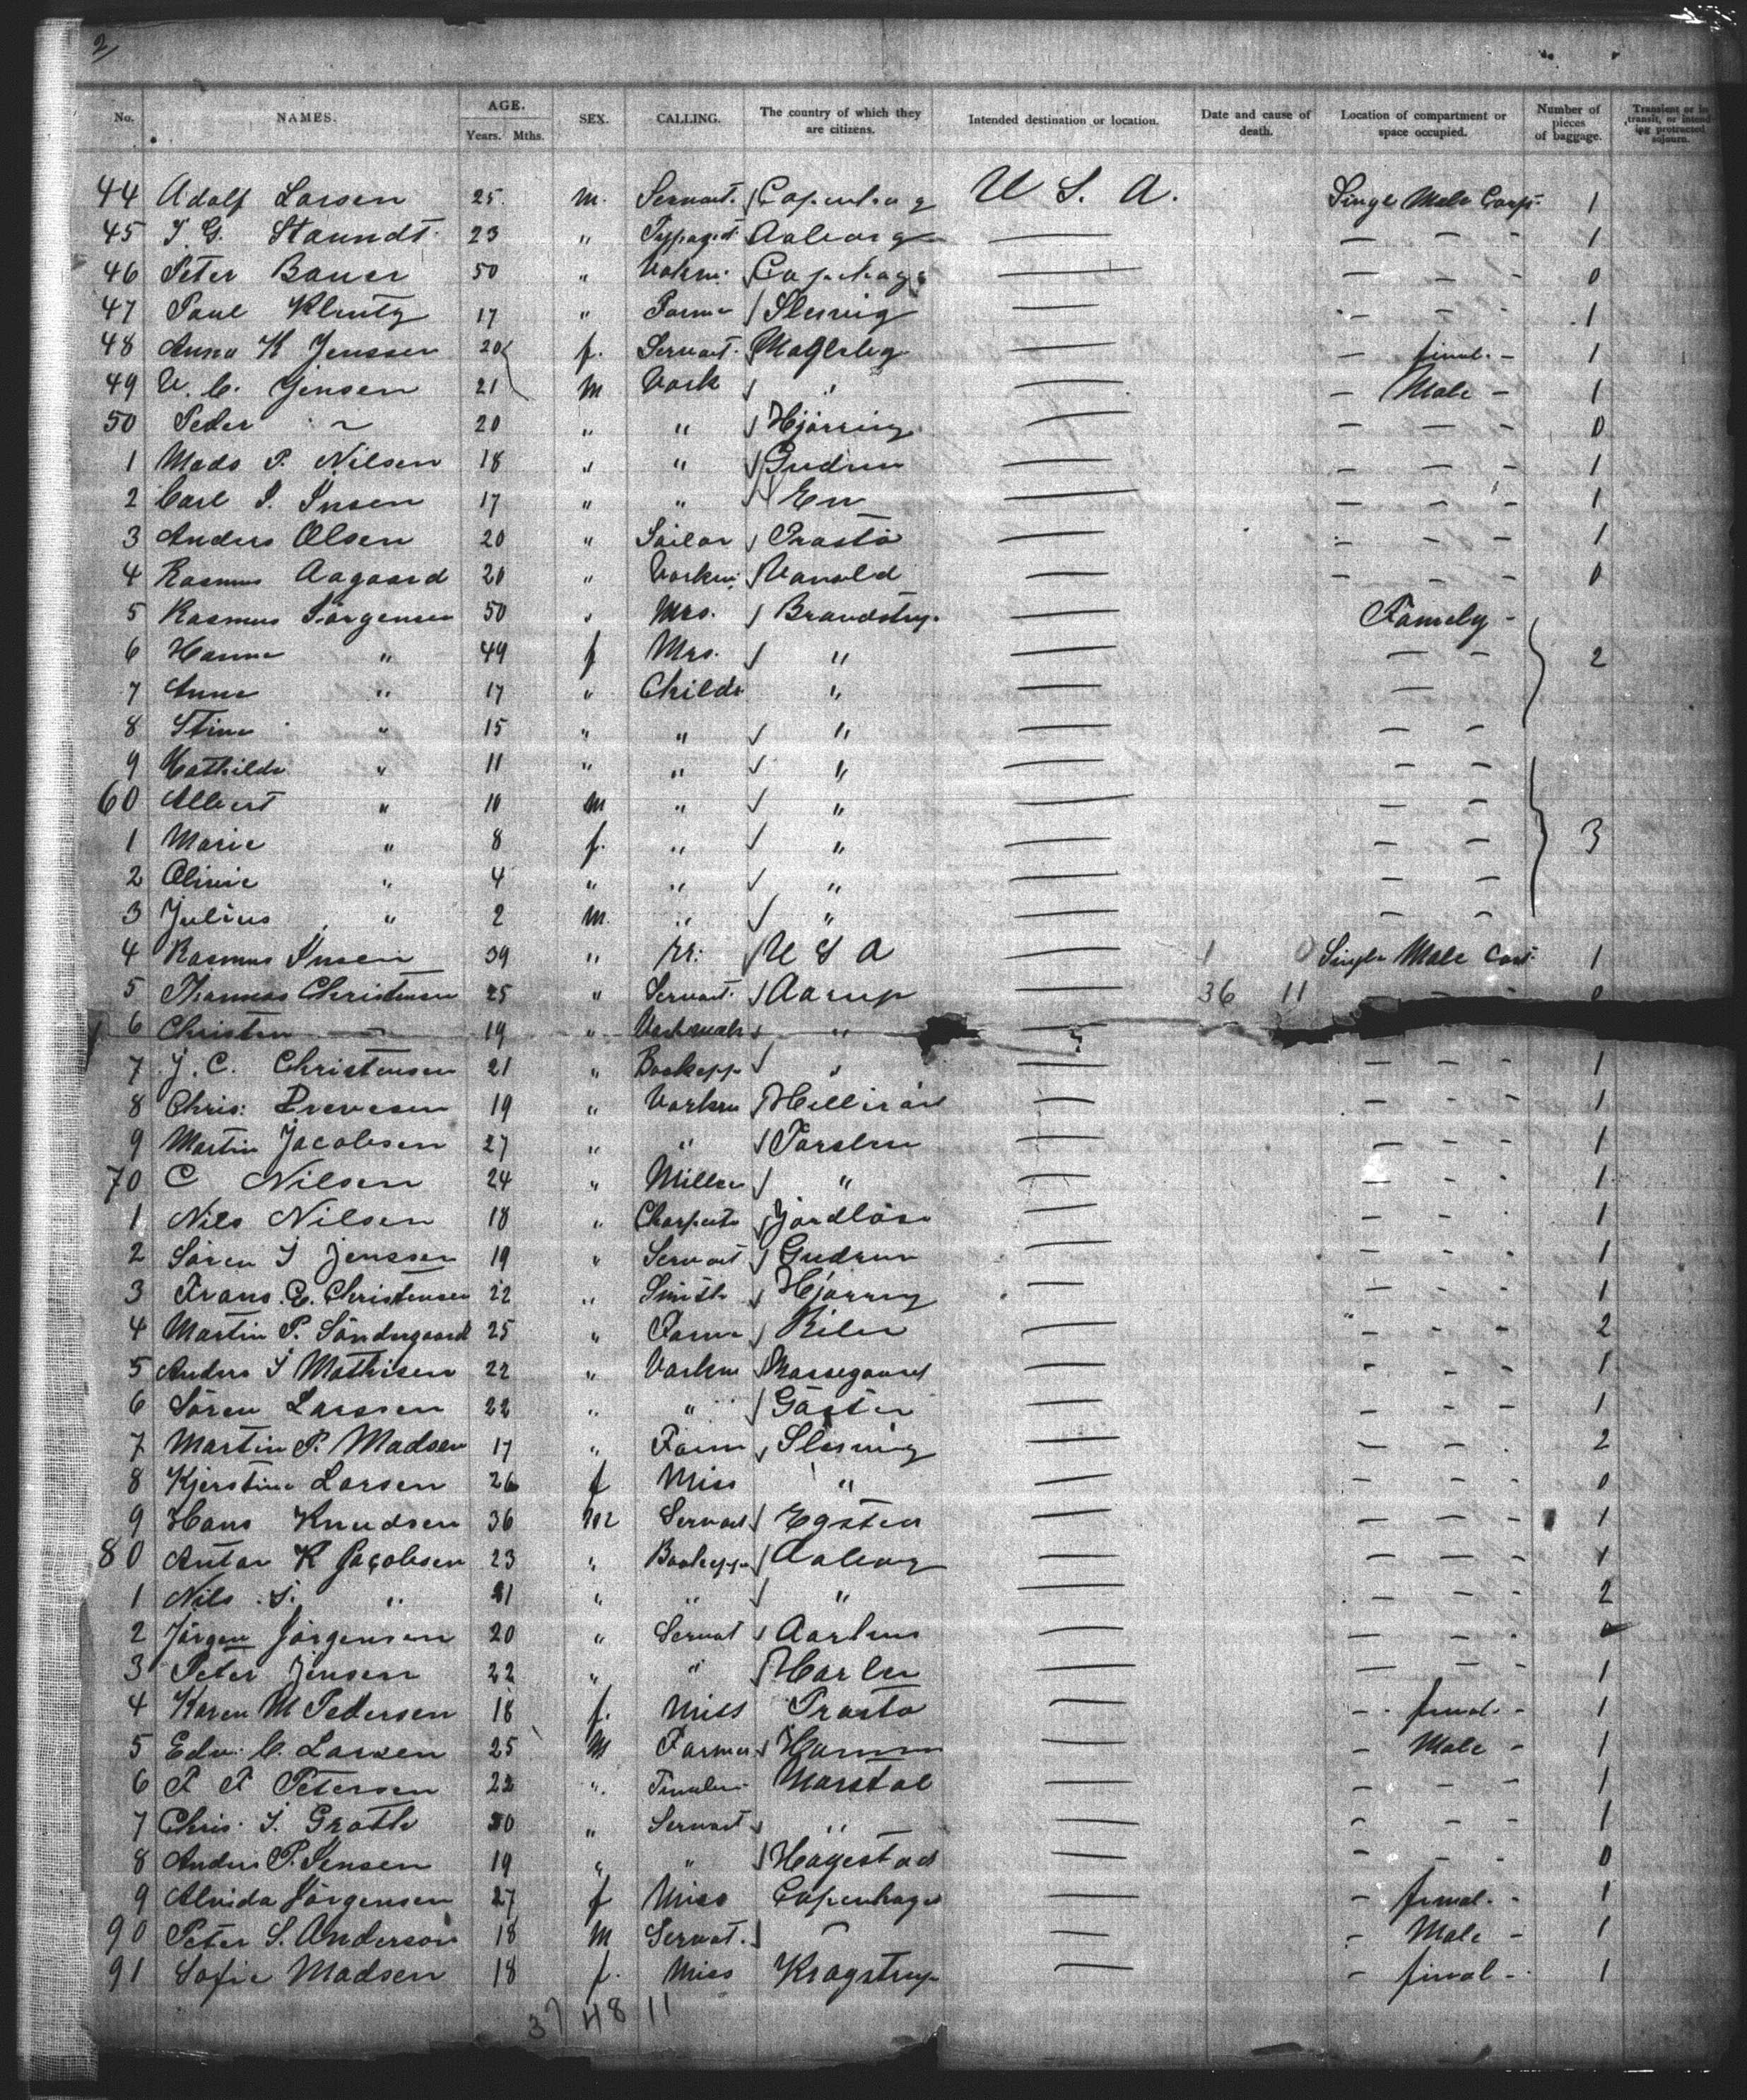 2/
No. NAMES. AGE. Years. Mths. SEX. CALLING. The country of which they are citizens. Intended destination or location. Date and cause of death. Location of compartment or space occupied. Number of pieces of baggage. Transient or in transit, or intending protracted sojourn.
44 Adolf Larsen 25 m. Servant. U. S. A. Single Male Comp. 1
45 J. G. Staundt 23 " Aalborg — — — - 1
46 Peter Bauer 50 " — — - - 0
47 Paul 17 " Farmer Slesvig — - - - 1
48 Anna K Jenssen 20 f. Servant. — — - 1
49 V. C. Jensen 21 M Vork " — - Male - 1
50 Peder ~ 20 " " Hjörring — — — - 0
1 Mads P. Nilsen 18 " " Gudrun — - — - 1
2 Carl J. 17 " " — - — - 1
3 Anders Olsen 20 " Sailor Prastö — - - - 1
4 Rasmus Aagaard 20 " — — - - 0
5 Rasmus Jörgensen 50 " Mrs. Brandstrup — Famely -
6 Hanne " 49 f Mrs. " — — - 2
7 Anna " 17 " Childr " — —
8 Stine " 15 " " " — — -
9 " 11 " " " — — -
60 Albert " 10 M " " — — -
1 Marie " 8 f. " " — — — 3
2 Olivie " 4 " " " — — —
3 Julius " 2 M. " " — — -
4 Rasmus 39 " M. U S A — 1 0 Single Male Comt. 1
5 Thomas Christensen 25 " Servant. Aarup — 36 11 0
6 Christen — 19 " " —
7 J. C. Christensen 21 " Bookepp " — — — - 1
8 Chris. 19 " — - - - 1
9 Martin Jacobsen 27 " " — — - - 1
70 C Nilsen 24 " Miller " — - - 1
1 Nils Nilsen 18 " Jordlöse — - - - 1
2 Sören J Jenssen 19 " Servant Gudrun — - - - 1
3 Frans. C. Christensen 22 " Smith Hjörring — - - - 1
4 Martin P. Söndergaard 25 " Farmer — - - - 2
5 Anders J Mathisen 22 " — - - - 1
6 Sören Larssen 22 " " — - - - 1
7 Martin P. Madsen 17 " Farm Slesvig — — - . 2
8 Kjerstine Larsen 26 f Miss " — - - - 0
9 Hans Knudsen 36 M Servant — - — - 1
80 Anton K Jacobsen 23 " Bookepp Aalborg — — — - 1
1 Nils J. " 21 " " " — - - - 2
2 Jörgen Jörgensen 20 " Servant Aarhus — — — - 0
3 Peter Jensen 22 " " — — — - 1
4 Karen M Pedersen 18 f. Miss Prasto — - - 1
5 Edw. C. Larsen 25 M Farmer — - Male - 1
6 P. P. Petersen 22 " Marstal — - - - 1
7 Chris. J. Groth " Servant " — - - - 1
8 Anders P. Jensen 19 " " Hagestad — - - - 0
9 Alvida Jörgensen 27 f Miss Copenhagen — - - 1
90 Peter S. Anderson 18 M Servant. — - Male - 1
91 Sofie Madsen 18 f. Miss Kragstrup — - - 1
37 48 11